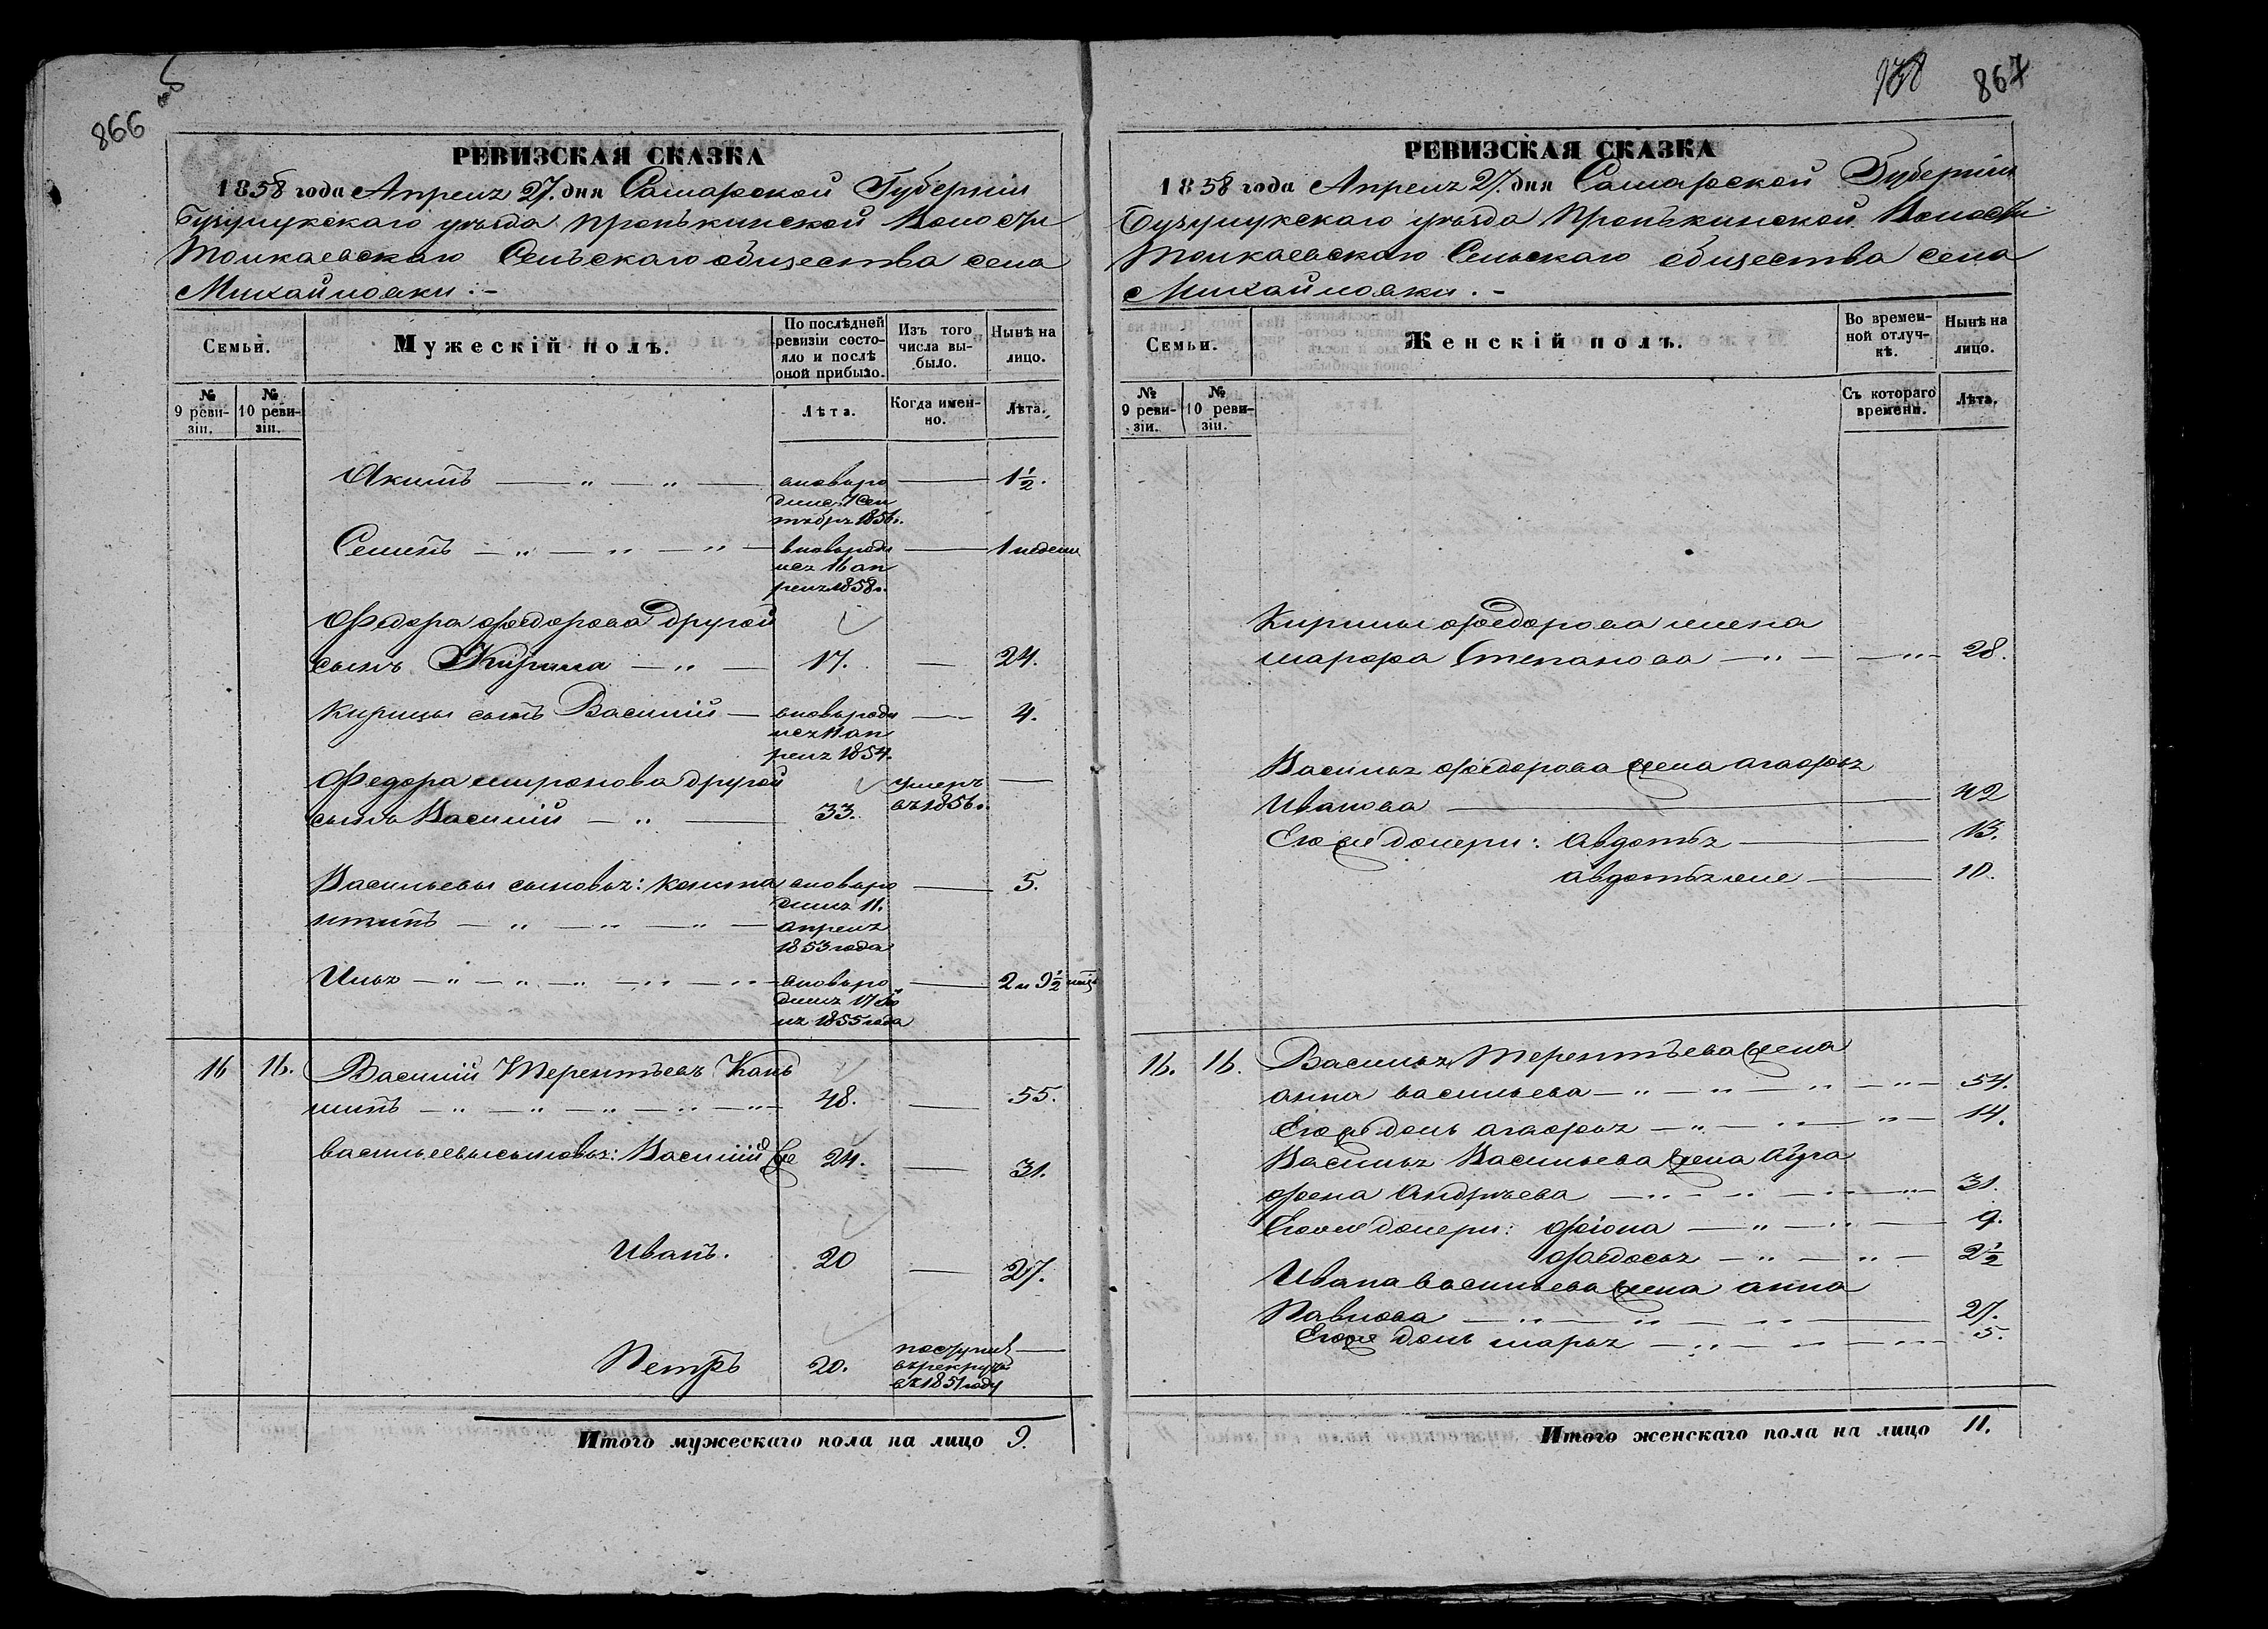 866
РЕВИЗСКАЯ СКАЗКА
1858 года Апреля 27. дня Самарской Губернiи
Бузулукскаго уѣзда Пронькинской Волости
Толкаевскаго Сельскаго общества села
Михайловки :-
Семьи.
Мужескiй полъ.
По послѣдней ревизiи состояло и послѣ оной прибыло.
Изъ того числа выбыло.
Нынѣ на лицо.
№ 9 ревизiи.
№ 10 ревизiи.
Лѣта.
Когда именно.
Лѣта.
Акимъ — " — " — вновьро — 1½.
дился 1 Сен
тября 1856г.
Семенъ — " — " — " — вновьроди — 1 недели
лся 16 ап
реля 1858г.
Федора Федорова другой
сынъ Кирила — " — 17. — 24.
Кирилы сынъ Василiй — вновьроди — 4.
лся 11 ап
реля 1854.
Федора миронова другой умеръ —
сынъ Василiй — " — 33. въ 1856г.
Васильевы сыновья: Конста вновьро — 5.
нтинъ — " — " — " — дился 11.
апреля
1853 года
Илья — " — " — " — " — " — вновьро — 2 и 9½ мѣц
дился 17 Iю
ля 1855 года
16 16. Василiй Терентьевъ Кань
шинъ — " — " — " — " — " — 48. — 55.
васильевы сыновья: Василiй же 24. — 31.
Иванъ. 20 — 27.
Петръ 20. поступилъ —
въ рекруты
въ 1851 году
Итого мужескаго пола на лицо 9.
867
РЕВИЗСКАЯ СКАЗКА
1858 года Апреля 27. дня Самарской Губернiи
Бузулукскаго уѣзда Пронькинской Волости
Толкаевскаго Сельскаго общества села
Михайловки. -
Семьи.
Женскiй полъ.
Во временной отлучкѣ.
Нынѣ на лицо.
№ 9 ревизiи.
№ 10 ревизiи.
Съ котораго времени.
Лѣта.
Кирилы Федорова жена
марфа Степанова — " — — " — 28.
Василья Федорова жена агафья
Иванова — 42
Его же дочери: Авдотья — 13.
авдотья же — 10.
16. 16. Василья Терентьева жена
анна васильева — " — " — " — " — 54.
Его же дочь агафья — " — " — " — 14.
Василья Васильева жена Агра
фена Андреева — " — " — " — " — 31.
Его же дочери: Фiона — " — " — 9.
Федосья — " — " — 2½
Ивана васильева жена анна
Павлова — " — " — " — 27.
Его же дочь марья — " — " — " — 5.
Итого женскаго пола на лицо 11.